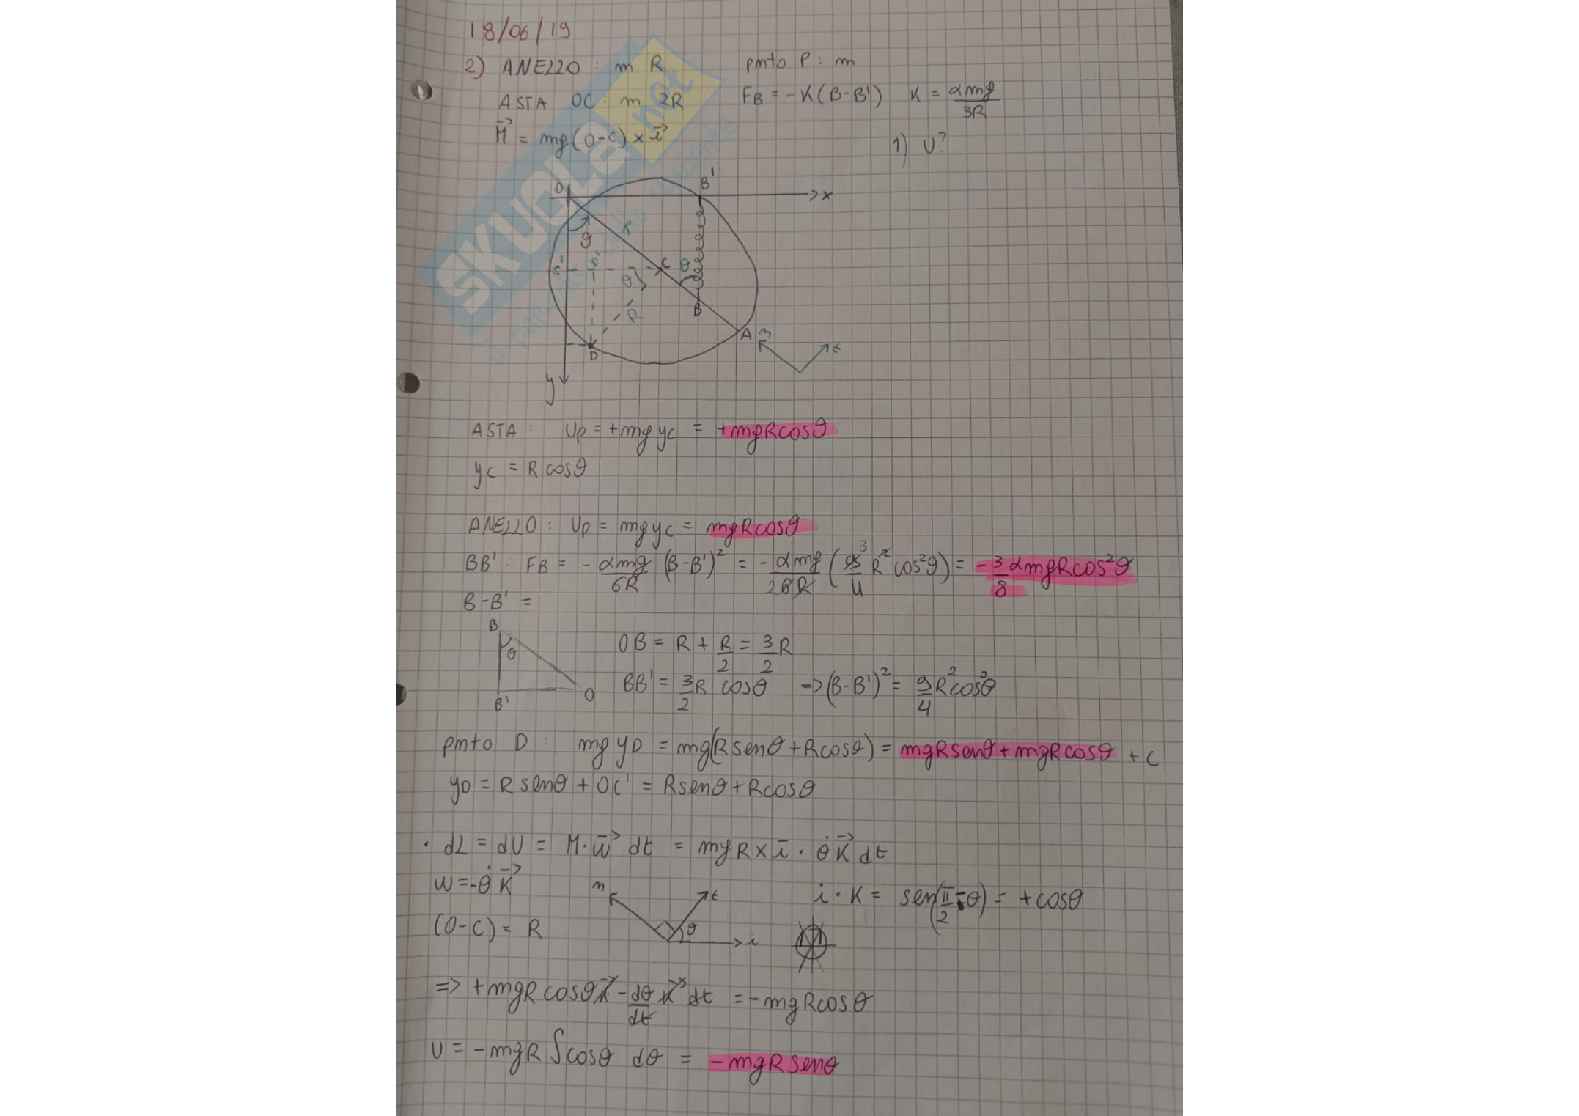 18/06/19
2) ANELLO: m R pmto P: m
ASTA OC: m 2R FB = -K(B-B') K = αmg/3R
M⃗ = mg(O-C) × i⃗ 1) U?
O B' x
θ K
C' S' C θ
θ
R B
D A n t
y
ASTA: Up = +mg yc = +mgRcosθ
yc = R cosθ
ANELLO: Up = mg yc = mgRcosθ
BB': FB = -αmg/6R (B-B')² = -αmg/26R (93/4 R² cos²θ) = -3/8 αmgRcos²θ
B-B' =
B
θ OB = R + R/2 = 3/2 R
B' O BB' = 3/2 R cosθ -> (B-B')² = 9/4 R²cos²θ
pmto D: mg yD = mg(Rsenθ + Rcosθ) = mgRsenθ + mgRcosθ + C
yD = R senθ + OC' = Rsenθ + Rcosθ
· dL = dU = M · w⃗ dt = mgR × i · θ̇ K⃗ dt
w = -θ̇ K⃗ n t i · K = sen(π/2 - θ) = +cosθ
(O-C) = R θ i
=> +mgR cosθ K⃗ - dθ/dt K⃗ dt = -mgRcosθ
U = -mgR ∫cosθ dθ = -mgRsenθ
SKUOLA.net